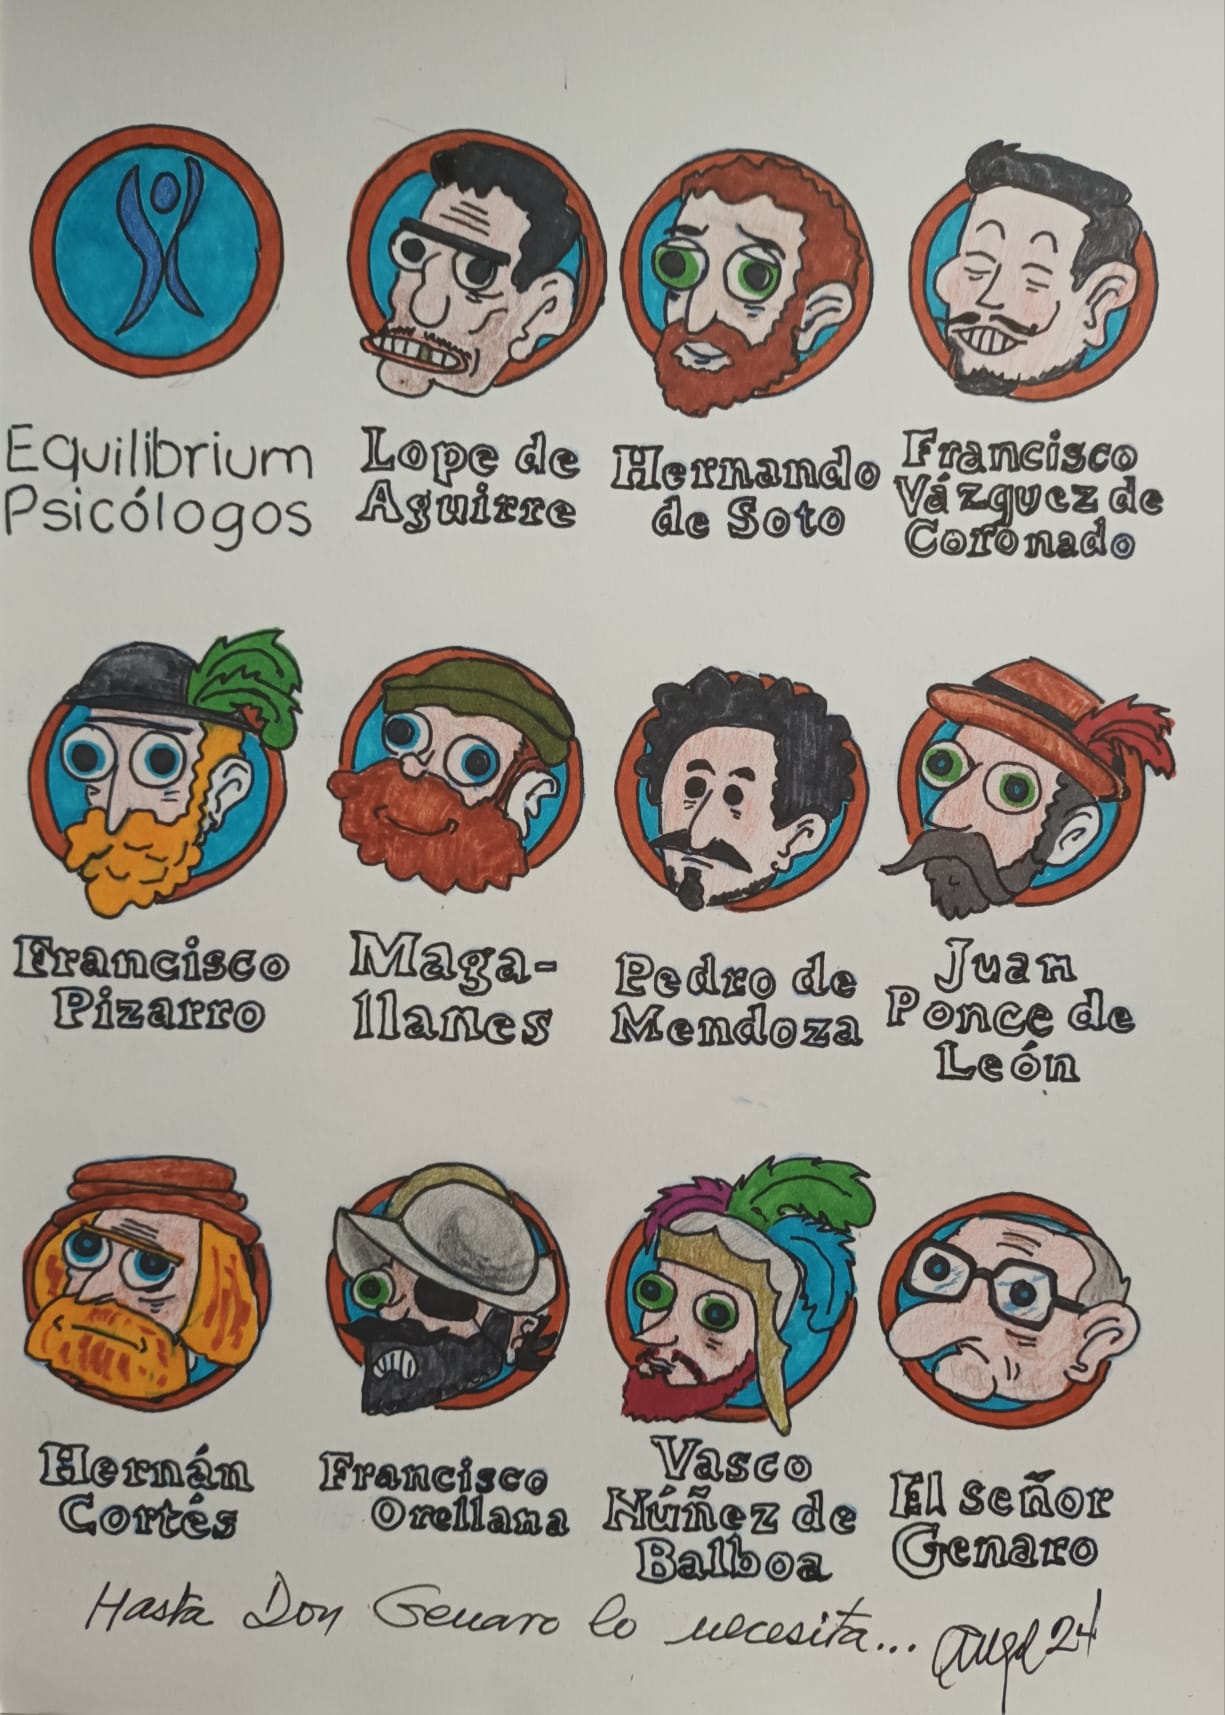 Equilibrium
Psicólogos
Lope de
Aguirre
Hernando
de Soto
Francisco
Vázquez de
Coronado
Francisco
Pizarro
Maga-
llanes
Pedro de
Mendoza
Juan
Ponce de
León
Hernán
Cortés
Francisco
Orellana
Vasco
Núñez de
Balboa
El señor
Genaro
Hasta Don Genaro lo necesita...
24